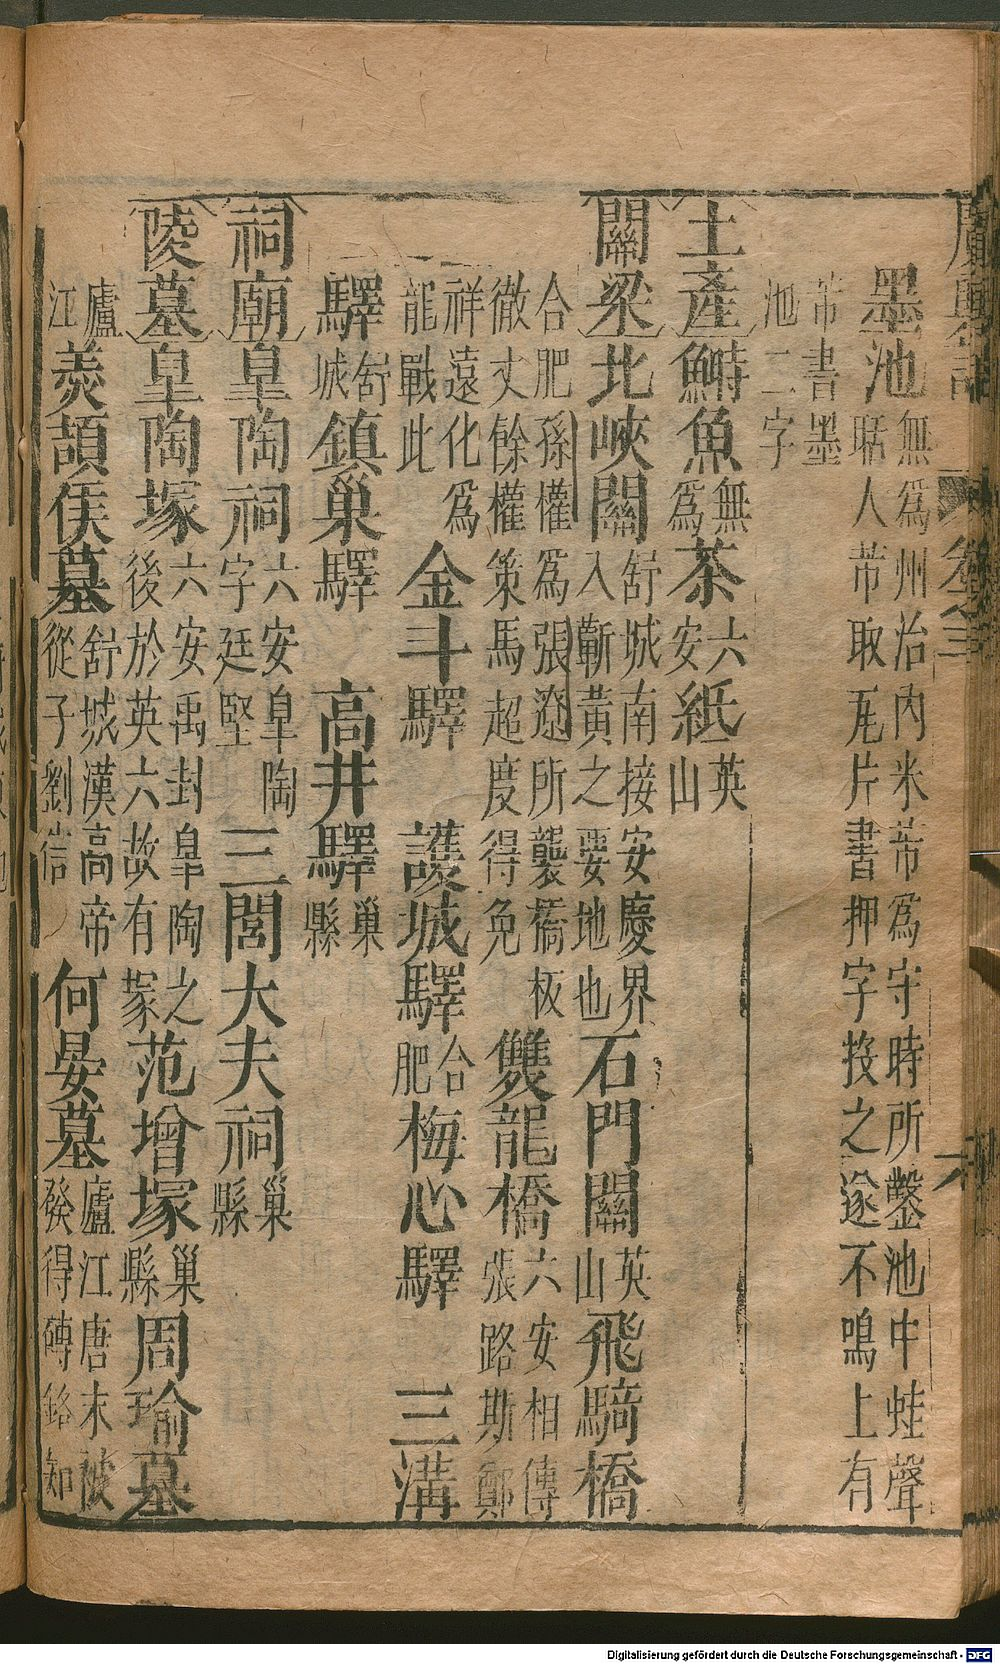 廣輿記 卷之三 六
墨池無爲州治內米芾爲守時所鑿池中蛙聲聒人芾取瓦片書押字投之遂不鳴上有
芾書墨池二字
土產鰣魚無爲茶六安紙英山
關梁北峽關舒城南接安慶界入蘄黃之要地也石門關英山飛騎橋
合肥孫權爲張遼所襲橋板徹丈餘權策馬超度得免雙龍橋六安相傳張路斯鄭
祥遠化爲龍戰此金斗驛 護城驛合肥梅心驛 三溝
驛舒城鎮巢驛 高井驛巢縣
祠廟皐陶祠六安皐陶字廷堅三閭大夫祠巢縣
陵墓皐陶塚六安禹封皐陶之後於英六故有塚范增塚巢縣周瑜墓
廬江羹頡侯墓舒城漢高帝從子劉信何晏墓廬江唐末被發得磚銘知
Digitalisierung gefördert durch die Deutsche Forschungsgemeinschaft - DFG